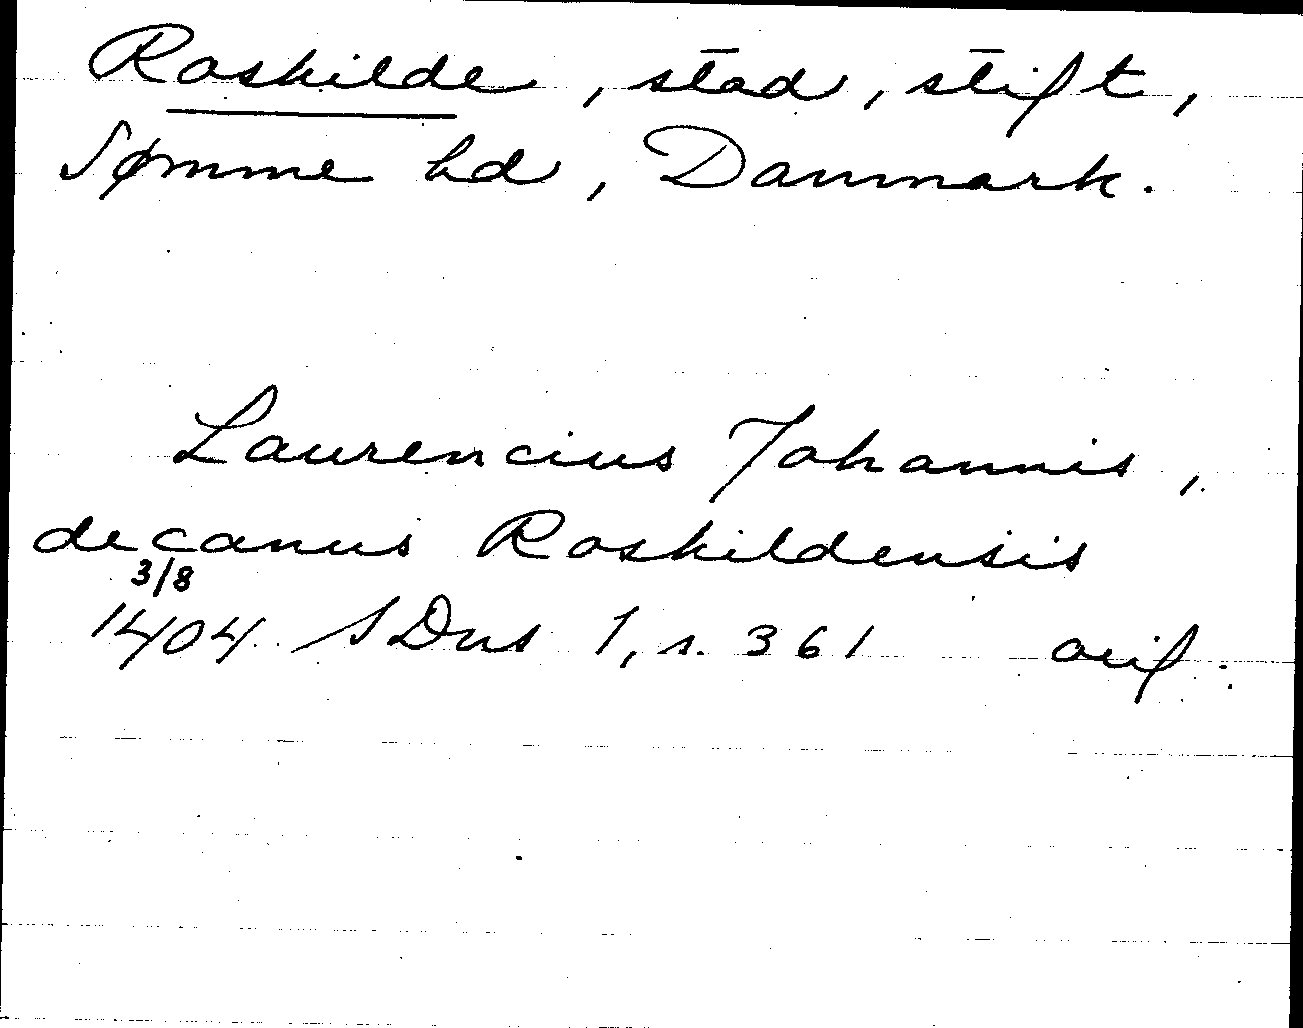 Roskilde, stad, stift,
Sømme hd, Danmark.
Laurencius Johannis,
decanus Roskildensis
3/8
1404 SDns 1, s. 361 avif.